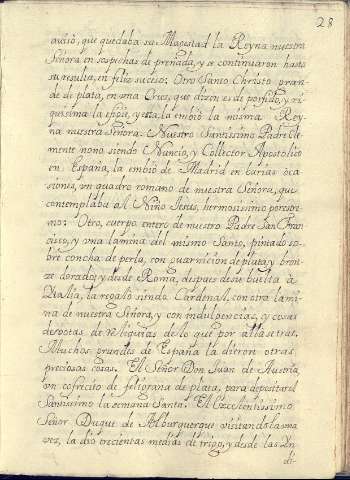 28
avisó, que quedaba su Magestad la Reyna nuestra
Señora en sospechas de preñada, y se continuaron hasta
su resulta, en feliz suceso: Otro Santo Christo gran-
de de plata, en una Cruz, que dizen es de porfido, y ri-
quissima la efigie, y esta la embió la misma Rey-
na nuestra Señora: Nuestro Santissimo Padre Cle-
mente nono siendo Nuncio, y Collector Apostolico
en España, la embió de Madrid en varias oca
siones, un quadro romano de nuestra Señora, que
contemplaba al Niño Jesus, hermosissimo por estre-
mo: Otro, cuerpo entero de nuestro Padre San Fran-
cisco, y una lamina del mismo Santo, pintado so-
bre concha de perla, con guarnicion de plata, y bron-
ze dorado; y desde Roma, despues de su buelta à
Italia, la regaló siendo Cardenal, con otra lami-
na de nuestra Señora, y con indulgencias, y cosas
devotas de Reliquias, de lo que por alla se trae.
Muchos grandes de España la dieron otras
preciosas cosas. El Señor Don Juan de Austria
un cofrecito de filigrana de plata, para depositar el
Santissimo la semana Santa. El Excelentissimo
Señor Duque de Alburquerque visitandola una
vez, la dio trecientas medias de trigo, y desde las Yn
di-